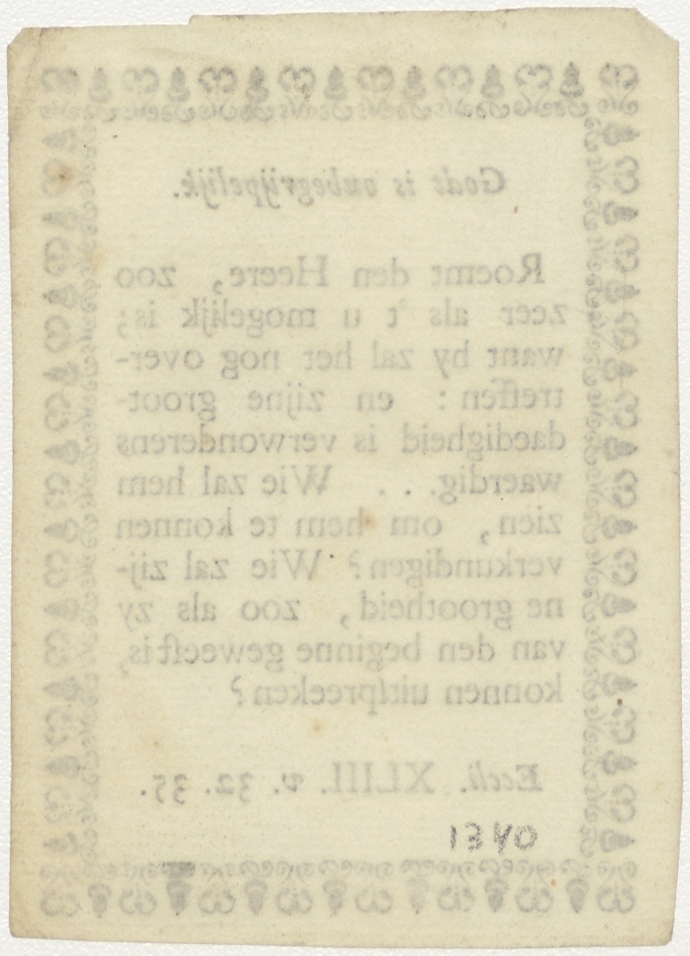 Godt is onbegrijpelijk.
Roemt den Heere, zoo
zeer als 't u mogelijk is;
want hy zal het nog over-
treffen: en zijne groot-
daedigheid is verwonderens
waerdig. . . Wie zal hem
zien, om hem te konnen
verkundigen? Wie zal zij-
ne grootheid, zoo als zy
van den beginne geweeſt is,
konnen uitſpreeken?
Eccli. XLIII. v. 32. 35.
1340